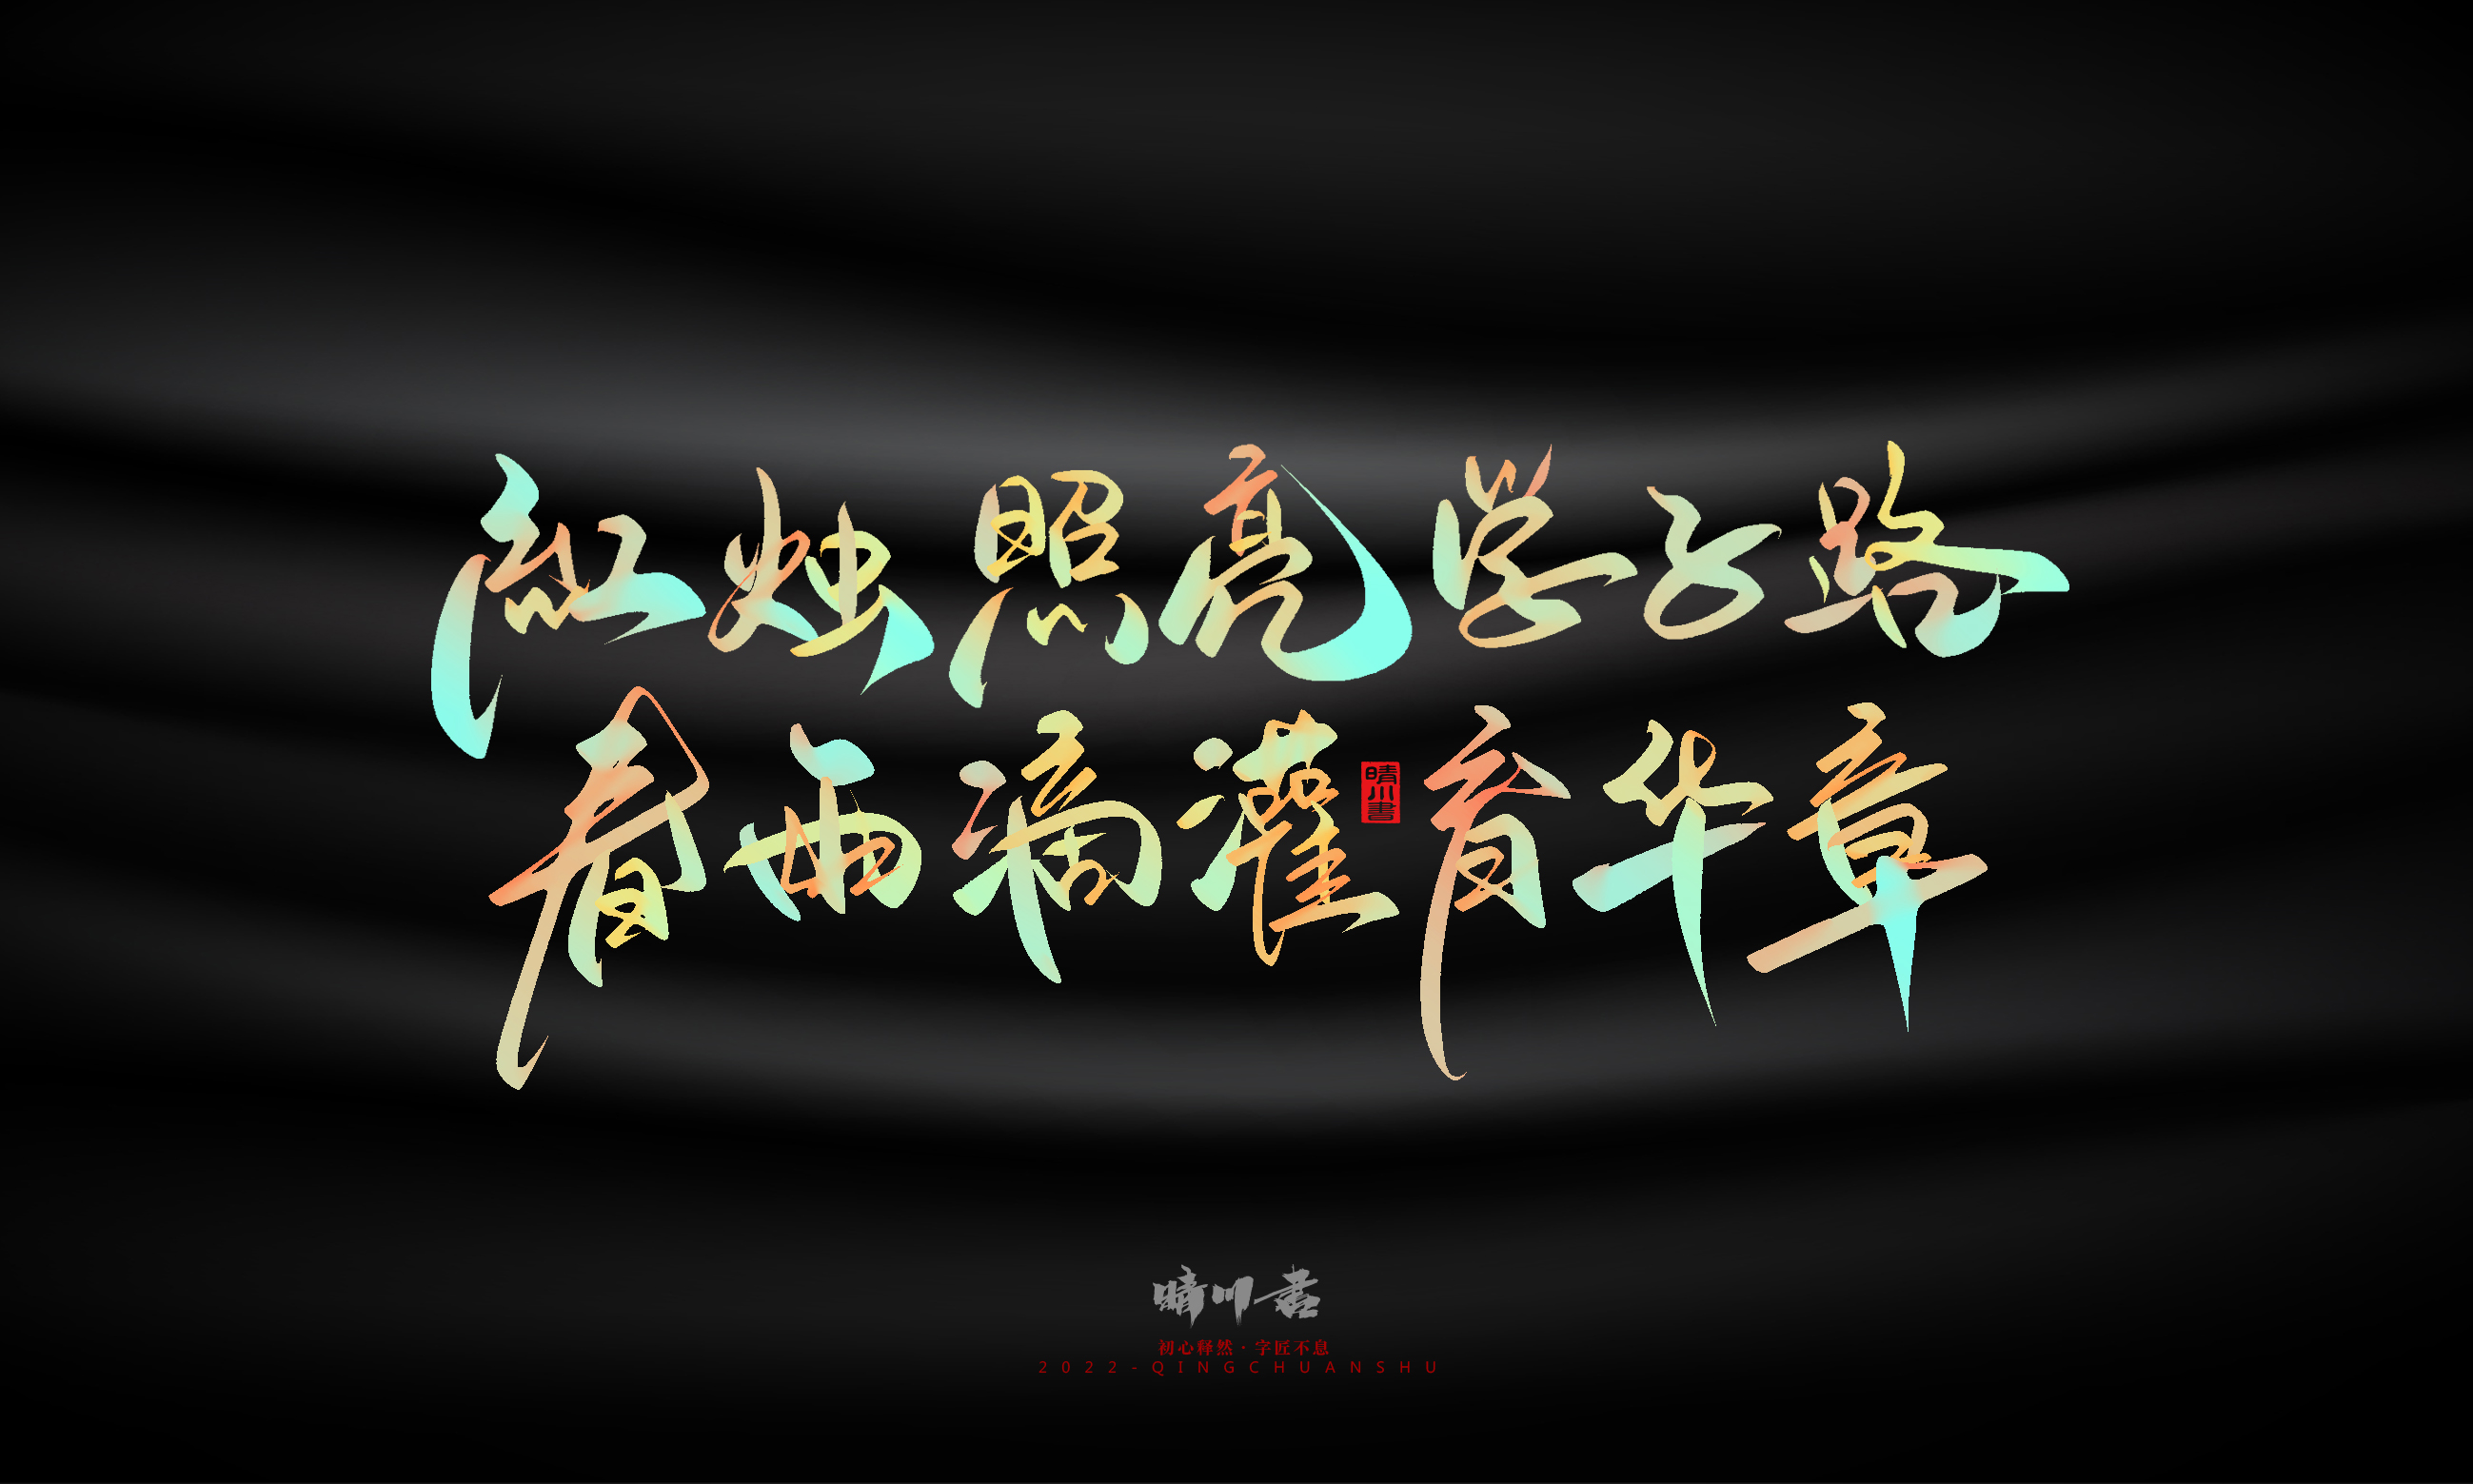 红烛照亮学子路
春雨滴灌育华章
晴川書
晴川書
初心释然·字匠不息
2022-QINGCHUANSHU